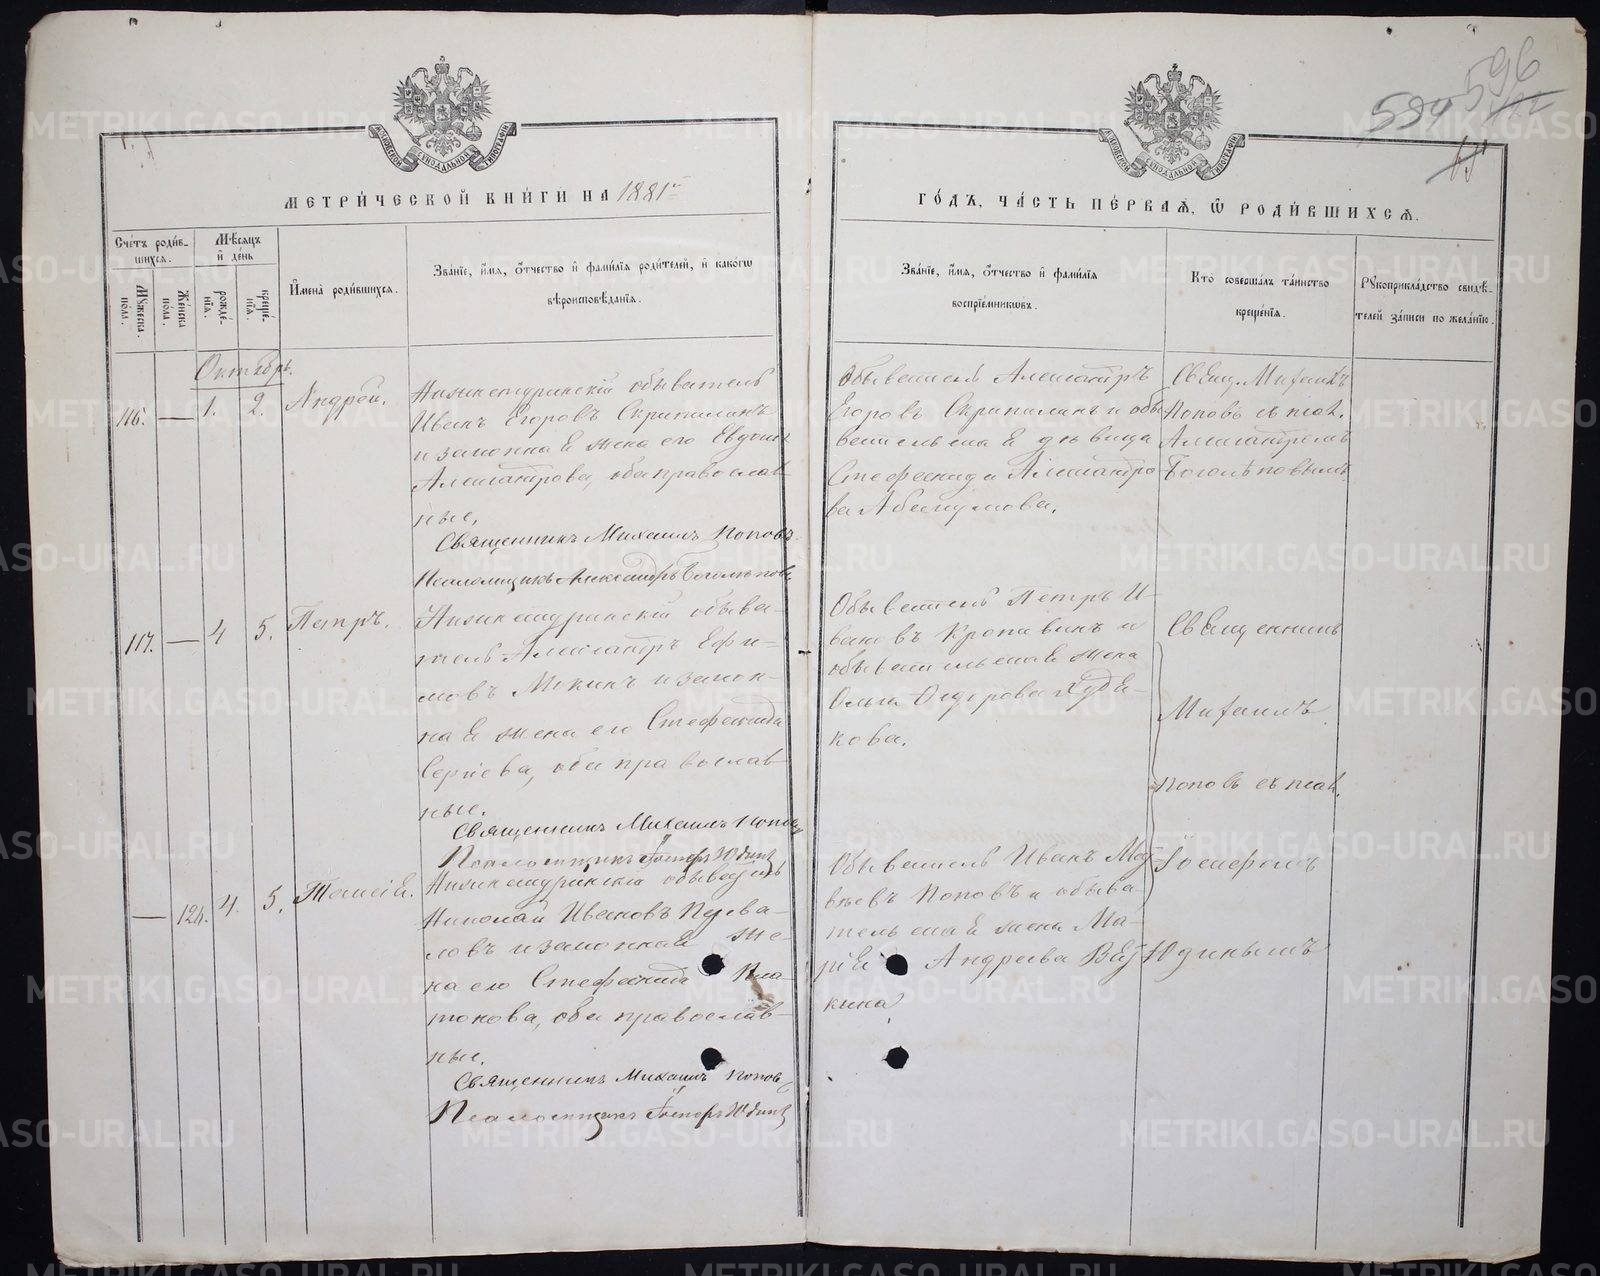 596
594
МЕТРИ́ЧЕСКОЙ КНИ́ГИ НА 1881 г.
ГО́ДЪ, ЧА́СТЬ ПЕ́РВАѦ, Ѿ РОДИ́ВШИХСѦ.
Сче́тъ роди́в-
шихся.
Мѣ́сяцъ
и҆ де́нь
Му́жеска
пола.
Же́нска
пола.
рожде́-
нїѧ.
креще́-
нїѧ.
И҆мена̀ роди́вшихся.
Зва́нїе, и҆́мѧ, ѻ҆́тчество и҆ фами́лїѧ роди́телей, и҆ како́гѡ
вѣроисповѣ́данїѧ.
Зва́нїе, и҆́мѧ, ѻ҆́тчество и҆ фами́лїѧ
воспрїе́мникѡвъ.
Кто̀ соверша́лъ та́инство
креще́нїѧ.
Рукоприкла́дство свидѣ́-
телей за́писи по жела́нїю.
Октябрь.
116. — 1. 2. Андрей.
Нижнетуринскій обыватель
Иванъ Егоровъ Скрипилинъ
и законная жена его Евдокія
Александрова, оба православ
ные.
Священникъ Михаилъ Поповъ
Псаломщикъ Александръ Боголѣповъ
Обыватель Александръ
Егоровъ Скрипилинъ и обы
вательская дѣвица
Стефанида Александро
ва Абакумова.
Свящ. Михаилъ
Поповъ съ псал.
Александромъ
Боголѣповымъ
117. — 4 5. Петръ.
Нижнетуринскій обыва-
тель Александръ Ефи-
мовъ Мокинъ и закон-
ная жена его Стефанида
Сергіева, оба православ
ные.
Священникъ Михаилъ Поповъ
Псаломщикъ Іосифъ Юдинъ
Обыватель Петръ И-
вановъ Кропавинъ и
обывательская жена
Ольга Ѳедорова Худя-
кова.
Священникъ
Михаилъ
Поповъ съ псал.
Іосифомъ
Юдинымъ
— 124. 4. 5. Таисія.
Нижнетуринскій обыватель
Николай Ивановъ Перева-
ловъ и законная же-
на его Стефанида Пла-
тонова, оба православ-
ные.
Священникъ Михаилъ Поповъ
Псаломщикъ Іосифъ Юдинъ
Обыватель Иванъ Мат
вѣевъ Поповъ и обыва-
тельская жена Ма-
рія Андреева
кина